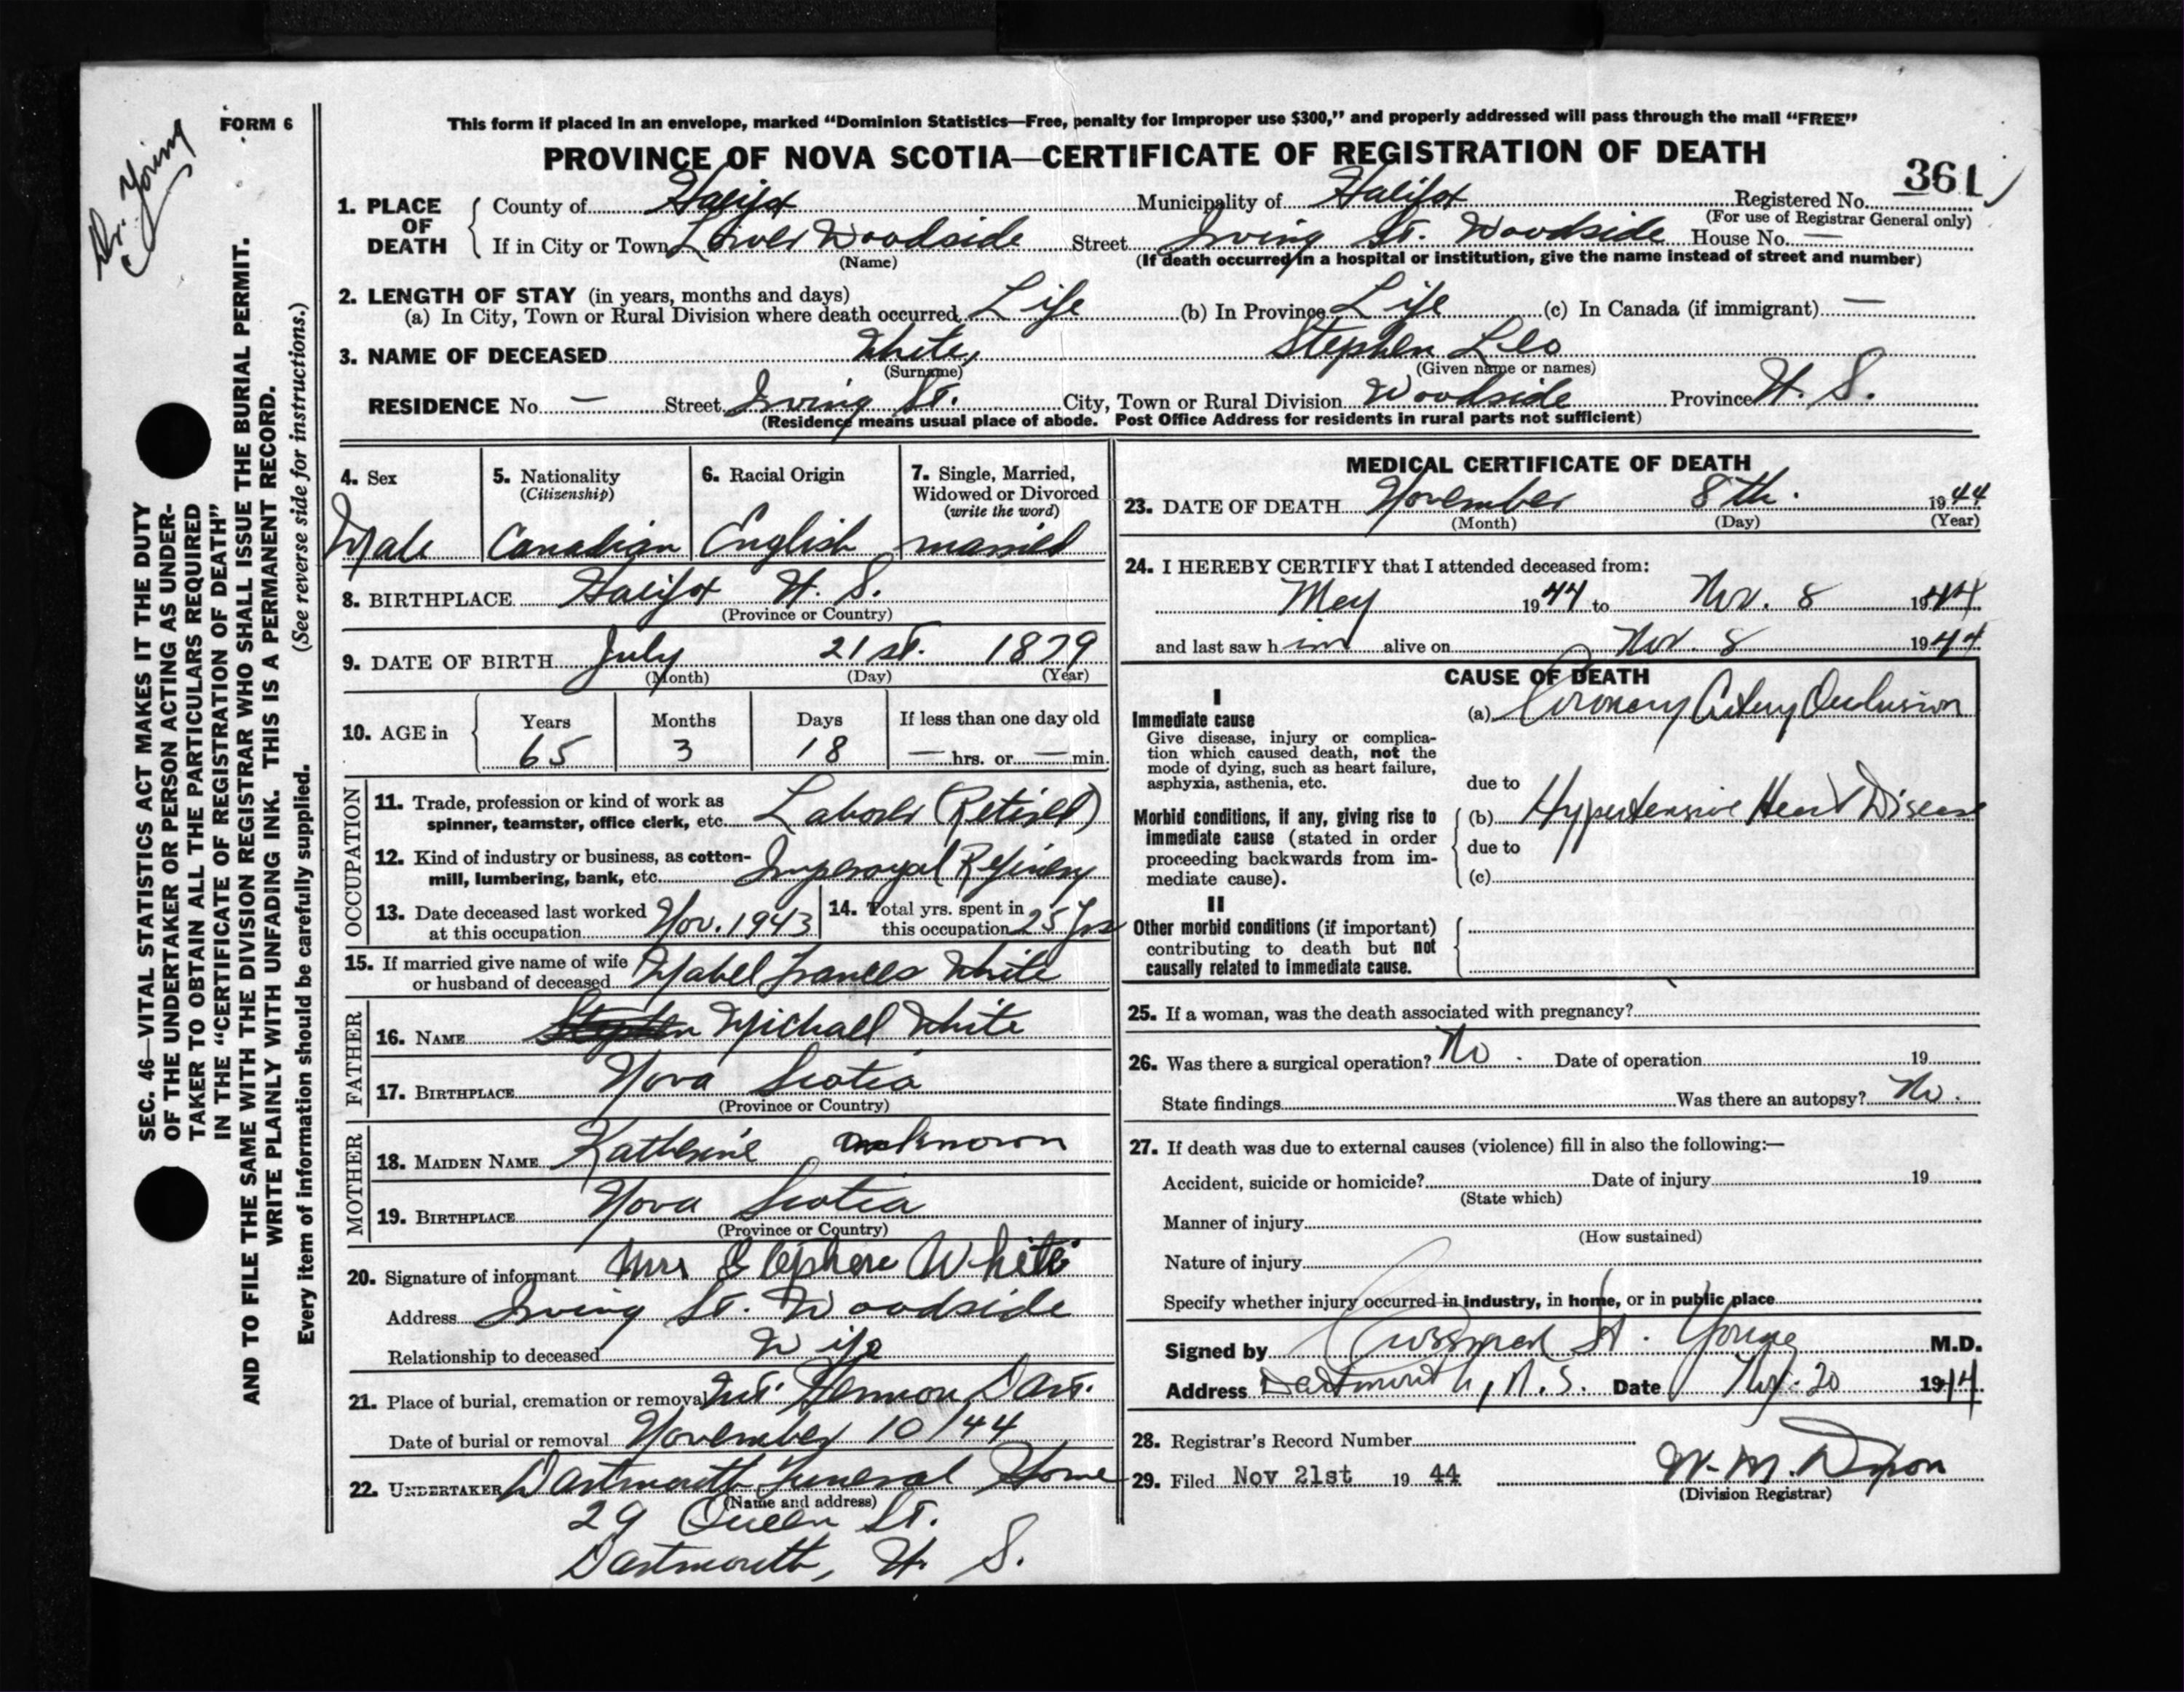 Dr. Young
FORM 6
This form if placed in an envelope, marked "Dominion Statistics—Free, penalty for improper use $300," and properly addressed will pass through the mail "FREE"
PROVINCE OF NOVA SCOTIA—CERTIFICATE OF REGISTRATION OF DEATH
361
1. PLACE OF DEATH County of Halifax Municipality of Halifax Registered No.
(For use of Registrar General only)
If in City or Town Lower Woodside Street Irving St. Woodside House No. —
(Name) (If death occurred in a hospital or institution, give the name instead of street and number)
2. LENGTH OF STAY (in years, months and days)
(a) In City, Town or Rural Division where death occurred Life (b) In Province Life (c) In Canada (if immigrant) —
3. NAME OF DECEASED White, Stephen Leo
(Surname) (Given name or names)
RESIDENCE No. — Street Irving St. City, Town or Rural Division Woodside Province N. S.
(Residence means usual place of abode. Post Office Address for residents in rural parts not sufficient)
4. Sex
Male
5. Nationality
(Citizenship)
Canadian
6. Racial Origin
English
7. Single, Married,
Widowed or Divorced
(write the word)
married
8. BIRTHPLACE Halifax N. S.
(Province or Country)
9. DATE OF BIRTH July 21st. 1879
(Month) (Day) (Year)
10. AGE in Years Months Days If less than one day old
65 3 18 — hrs. or — min.
OCCUPATION
11. Trade, profession or kind of work as
spinner, teamster, office clerk, etc. Laborer (Retired)
12. Kind of industry or business, as cotton-
mill, lumbering, bank, etc. Imperoyal Refinery
13. Date deceased last worked
at this occupation Nov. 1943
14. Total yrs. spent in
this occupation 25 Yrs
15. If married give name of wife
or husband of deceased Mabel Frances White
FATHER
16. NAME Stephen Michall White
17. BIRTHPLACE Nova Scotia
(Province or Country)
MOTHER
18. MAIDEN NAME Katherine unknown
19. BIRTHPLACE Nova Scotia
(Province or Country)
20. Signature of informant Mrs Stephen White
Address Irving St. Woodside
Relationship to deceased Wife
21. Place of burial, cremation or removal Mt. Hermon Dart.
Date of burial or removal November 10/44
22. UNDERTAKER Dartmouth Funeral Home
(Name and address)
29 Queen St.
Dartmouth, N. S.
MEDICAL CERTIFICATE OF DEATH
23. DATE OF DEATH November 8th. 1944
(Month) (Day) (Year)
24. I HEREBY CERTIFY that I attended deceased from:
May 1944 to Nov. 8 1944
and last saw him alive on Nov. 8 1944
CAUSE OF DEATH
I
Immediate cause
Give disease, injury or complica-
tion which caused death, not the
mode of dying, such as heart failure,
asphyxia, asthenia, etc.
(a) Coronary Artery Occlusion
due to
Morbid conditions, if any, giving rise to
immediate cause (stated in order
proceeding backwards from im-
mediate cause).
(b) Hypertensive Heart Disease
due to
(c)
II
Other morbid conditions (if important)
contributing to death but not
causally related to immediate cause.
25. If a woman, was the death associated with pregnancy?
26. Was there a surgical operation? No. Date of operation 19
State findings Was there an autopsy? No.
27. If death was due to external causes (violence) fill in also the following:—
Accident, suicide or homicide? Date of injury 19
(State which)
Manner of injury
(How sustained)
Nature of injury
Specify whether injury occurred in industry, in home, or in public place
Signed by H. Young M.D.
Address Dartmouth, N. S. Date Nov. 20 1944
28. Registrar's Record Number
29. Filed Nov 21st 19 44 W. M. Dixon
(Division Registrar)
SEC. 46—VITAL STATISTICS ACT MAKES IT THE DUTY
OF THE UNDERTAKER OR PERSON ACTING AS UNDER-
TAKER TO OBTAIN ALL THE PARTICULARS REQUIRED
IN THE "CERTIFICATE OF REGISTRATION OF DEATH"
AND TO FILE THE SAME WITH THE DIVISION REGISTRAR WHO SHALL ISSUE THE BURIAL PERMIT.
WRITE PLAINLY WITH UNFADING INK. THIS IS A PERMANENT RECORD.
Every item of information should be carefully supplied. (See reverse side for instructions.)